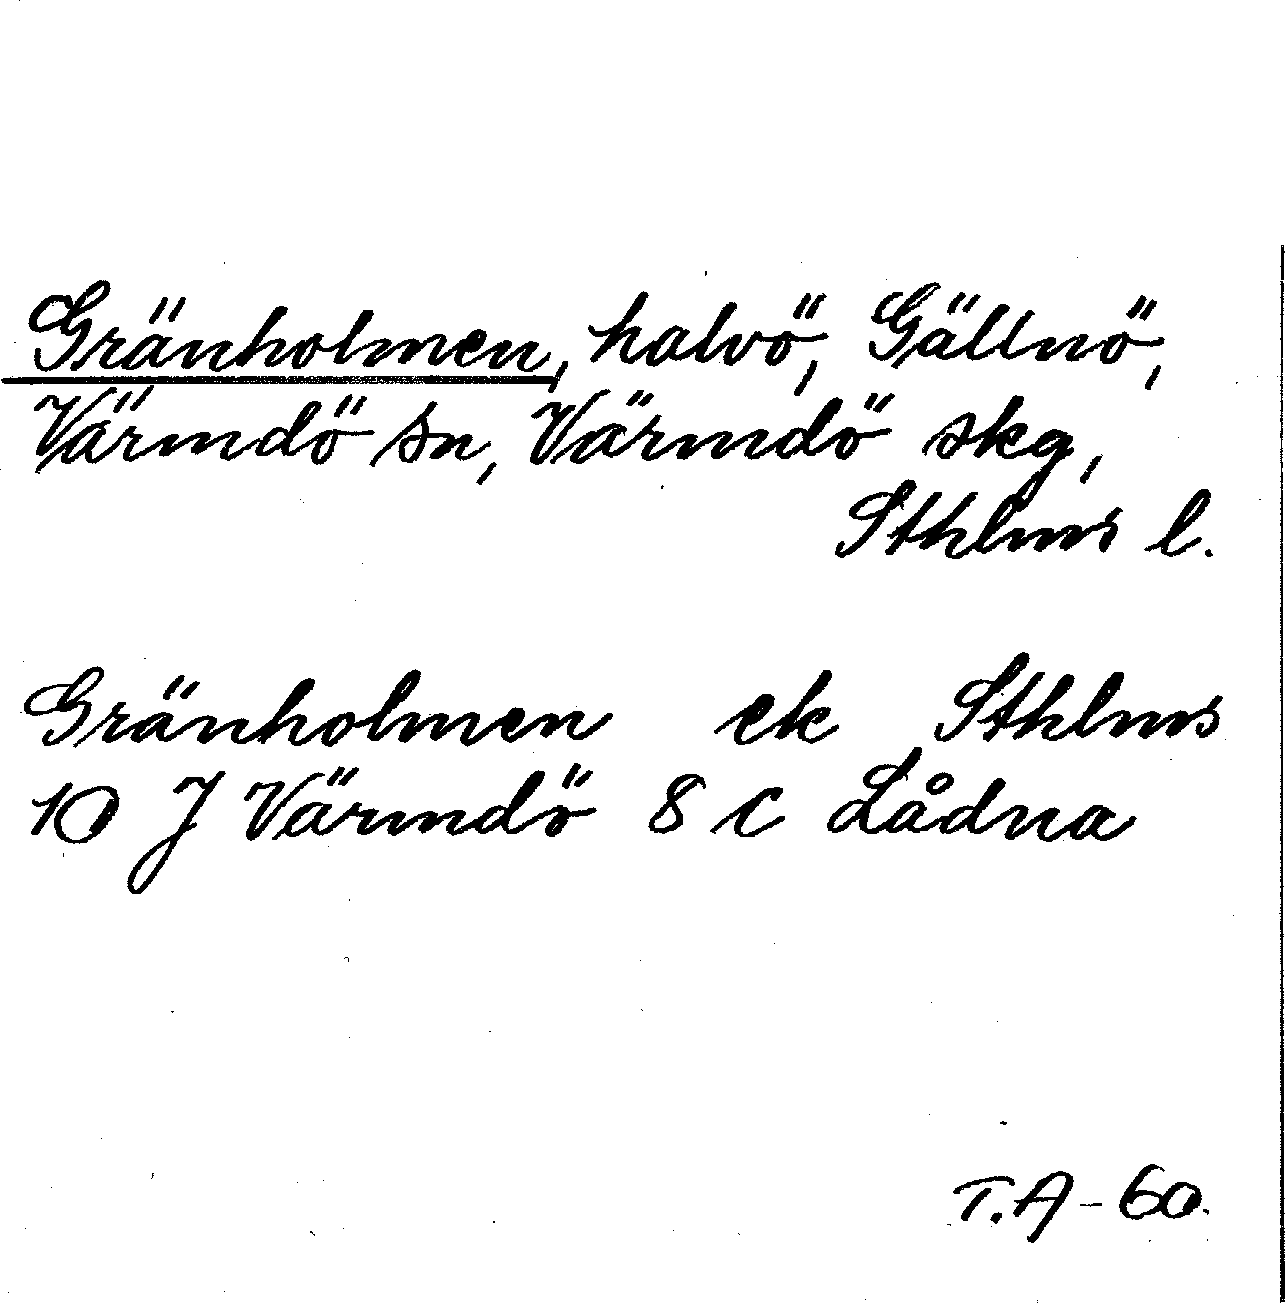 Gränholmen, halvö, Gällnö,
Värmdö sn, Värmdö skg,
Sthlms l.
Gränholmen ek Sthlms
10 J Värmdö 8 c Lådna
T.A-60